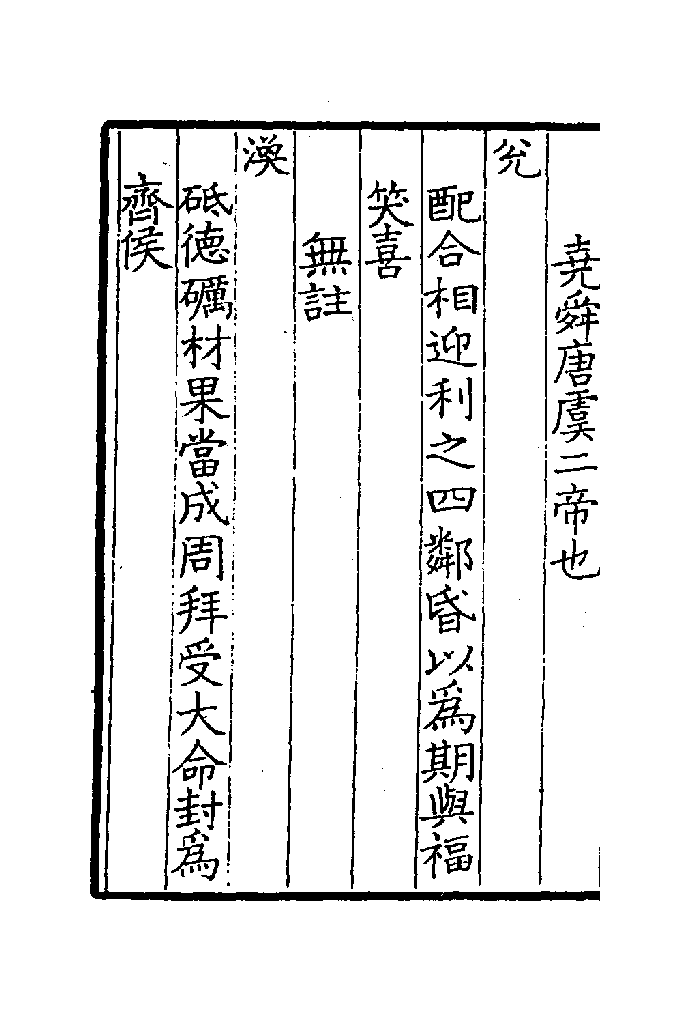 堯舜唐虞二帝也
兊
配合相迎利之四鄰昏以為期與福
笑喜
無註
渙
砥德礪材果當成周拜受大命封為
齊侯